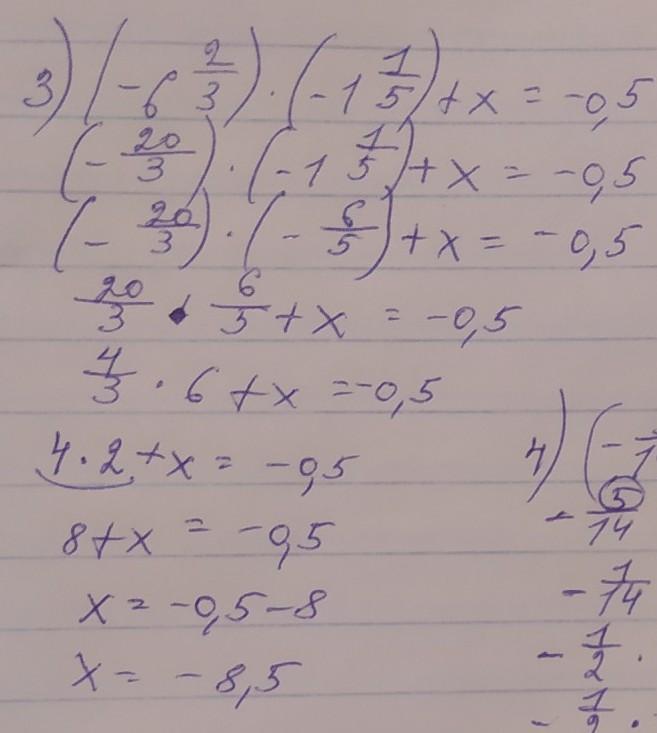 3) (-6 2/3) · (-1 1/5) + x = -0,5
(- 20/3) · (-1 1/5) + x = -0,5
(- 20/3) · (- 6/5) + x = -0,5
20/3 · 6/5 + x = -0,5
4/3 · 6 + x = -0,5
4 · 2 + x = -0,5
8 + x = -0,5
x = -0,5 - 8
x = -8,5
4) (-
- 5/14
- 1/14
- 1/2 ·
- 1/2 ·